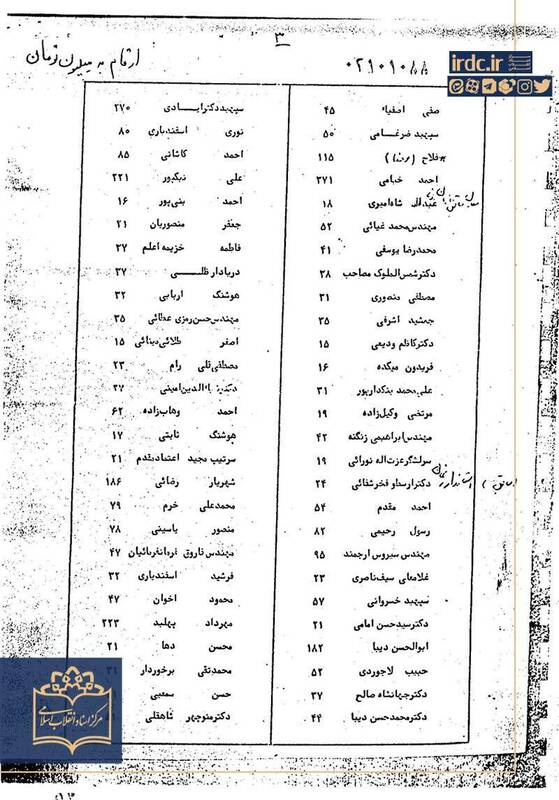 ۳
ارقام به میلیون تومان
۰۲۹۰۱۰۸۸
irdc.ir
صفی اصفیا ۴۵
سپهبد ضرغامی ۵۰
فلاح (رضا) ۱۱۵
احمد خیامی ۳۷۱
عبداله شاه‌امیری ۱۸
مهندس محمد غیائی ۵۲
محمدرضا یوسفی ۴۱
دکتر شمس‌الملوک مصاحب ۳۸
مصطفی منصوری ۳۱
جمشید اشرفی ۳۵
دکتر کاظم ودیعی ۱۵
فریدون میکده ۱۶
علی‌محمد بنکدارپور ۳۱
مرتضی وکیل‌زاده ۱۹
مهندس ابراهیمی زنگنه ۴۲
سرلشگر عزت‌اله نورائی ۱۹
دکتر ارسطو فخرشفائی ۲۴
احمد مقدم ۵۴
رسول رحیمی ۸۲
مهندس سیروس ارجمند ۹۵
غلامعلی سیف‌ناصری ۲۳
سپهبد خسروانی ۵۷
دکتر سیدحسن امامی ۲۱
ابوالحسن دیبا ۱۸۲
حبیب لاجوردی ۵۲
دکتر جهانشاه صالح ۳۷
دکتر محمدحسن دیبا ۴۴
سپهبد دکتر ایادی ۲۷۰
نوری اسفندیاری ۸۰
احمد کاشانی ۸۵
علی نیکپور ۲۲۱
احمد بنی‌پور ۱۶
جعفر منصوریان ۲۱
فاطمه خزیمه اعلم ۲۷
دریادار طلی ۳۷
هوشنگ اربابی ۳۲
مهندس حسن رمزی عطائی ۳۵
اصغر طلائی مینائی ۱۵
مصطفی‌قلی رام ۲۳
الدین امینی ۲۷
احمد وهاب‌زاده ۶۲
هوشنگ ثابتی ۱۷
سرتیپ مجید اعتمادمقدم ۲۱
شهریار رضائی ۱۸۶
محمدعلی خرم ۷۹
منصور یاسینی ۷۸
مهندس فاروق فرمانفرمائیان ۴۷
فرشید اسفندیاری ۳۲
محمود اخوان ۴۷
مهرداد پهلبد ۲۲۳
محسن دها ۲۱
محمدتقی برخوردار
حسن سمعیی
دکتر منوچهر شاهقلی
مرکز اسناد انقلاب اسلامی